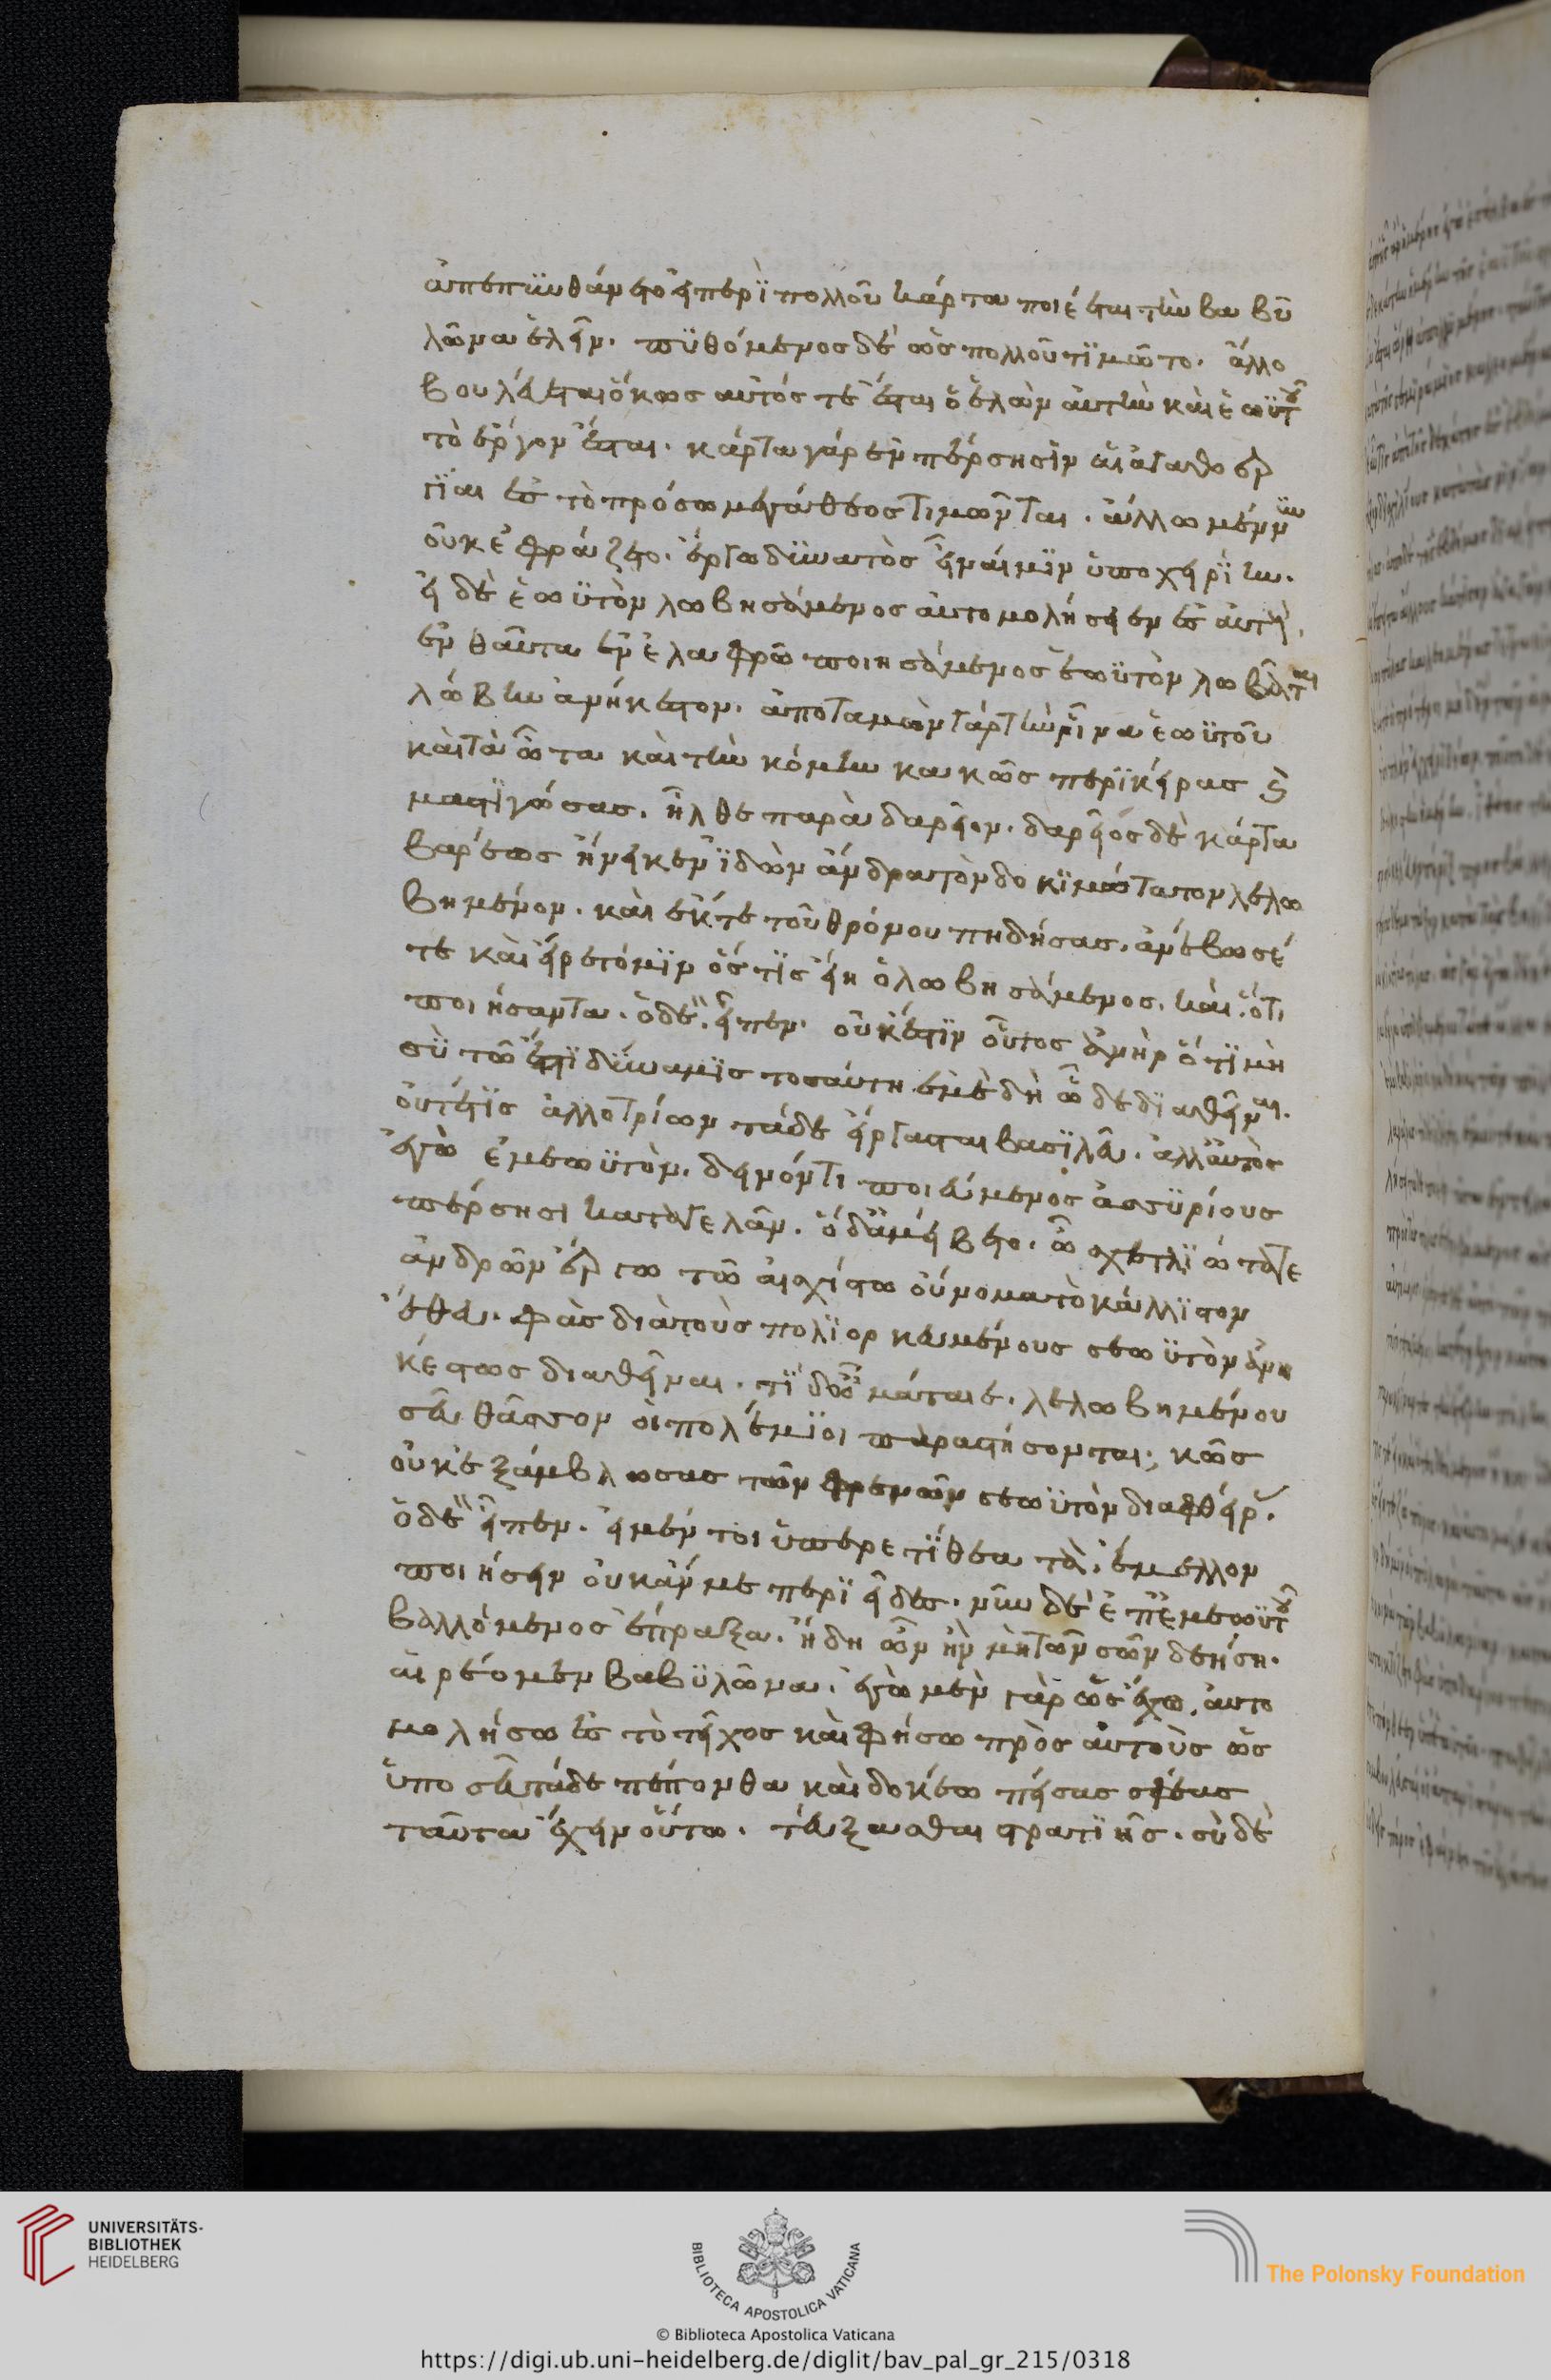 ἀπεπυνθάνετο εἰ περὶ πολλοῦ κάρτα ποιέεται τὴν βαβυ
λῶνα ἑλεῖν. πυθόμενος δὲ ὡς πολλοῦ τιμῶτο. ἄλλο
βουλεύεται ὅκως αὐτός τε ἔσται ὁ ἑλὼν αὐτὴν καὶ ἑωυτοῦ
τὸ ἔργον ἔσται. κάρτα γὰρ ἐν πέρσησιν αἱ ἀγαθοερ
γίαι ἐς τὸ πρόσω μεγάθεος τιμῶνται. ἄλλω μέν νυν
οὐκ ἐφράζετο. ἔργω δυνατὸς εἶναί μιν ὑποχειρίην.
εἰ δὲ ἑωυτὸν λωβησάμενος αὐτομολήσειεν ἐς αὐτή.
ἐνθαῦτα ἐν ἐλαφρῶ ποιησάμενος ἑωυτὸν λωβᾶται
λώβην ἀνήκεστον. ἀποταμὼν γὰρ τὴν ῥῖνα ἑωυτοῦ
καὶ τὰ ὦτα καὶ τὴν κόμην κακῶς περικείρας καὶ
μαστιγώσας. ἦλθε παρὰ δαρεῖον. δαρεῖος δὲ κάρτα
βαρέως ἤνεικεν ἰδὼν ἄνδρα τὸν δοκιμώτατον λελω
βημένον. καὶ ἔκ τε τοῦ θρόνου πηδήσας. ἀνέβωσέ
τε καὶ εἴρετό μιν ὅστις εἴη ὁ λωβησάμενος. καὶ ὅτι
ποιήσαντα. ὁ δὲ εἶπεν. οὐκ ἔστιν οὗτος ἀνὴρ ὅτι μὴ
σὺ τῶ ἔστι δύναμις τοσαύτη ἐμὲ δὴ ὧδε διαθεῖναι.
οὔτέ τις ἀλλοτρίων τάδε ἔργασται βασιλεῦ. ἀλλ αὐτὸς
ἐγὼ ἐμεωυτὸν. δεινόν τι ποιεύμενος ἀσσυρίους
πέρσησι καταγελᾶν. ὁ δ ἀμείβετο. ὦ σχετλιώτατε
ἀνδρῶν ἔργω τῶ αἰσχίστω οὔνομα τὸ κάλλιστον
ἔθευ. φὰς διὰ τοὺς πολιορκευμένους σεωυτὸν ἀνη
κέστως διαθεῖναι. τί δ ὦ μάταιε. λελωβημένου
σεῦ θᾶσσον οἱ πολέμιοι παραστήσονται; κῶς
οὐκ ἐξάμβλωσας τῶν φρενῶν σεωυτὸν διαφθείρ.
ὁ δὲ εἶπεν. εἰ μέν τοι ὑπερετίθεα τὰ ἔμελλον
ποιήσειν οὐκ ἄν με περι εἶδες. νῦν δὲ ἐπ ἐμεωυτοῦ
βαλλόμενος ἔπραξα. ἤδη ὦν ἢν μὴ τῶν σῶν δεήση.
αἱρέομεν βαβυλῶνα. ἐγὼ μὲν γὰρ ὡς ἔχω. αὐτο
μολήσω ἐς τὸ τεῖχος καὶ φήσω πρὸς αὐτοὺς ὡς
ὑπο σεῦ τάδε πέπονθα καὶ δοκέω πείσας σφέας
ταῦτα ἔχειν οὕτω. τεύξασθαι στρατιῆς. σὺ δὲ
UNIVERSITÄTS-
BIBLIOTHEK
HEIDELBERG
BIBLIOTECA APOSTOLICA VATICANA
The Polonsky Foundation
© Biblioteca Apostolica Vaticana
https://digi.ub.uni-heidelberg.de/diglit/bav_pal_gr_215/0318